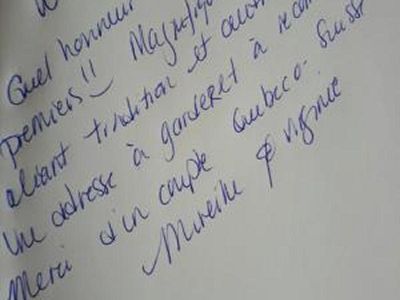 Quel honneur
premiers!! Magnifiq
alliant tradition et
une adresse à garder et à recom
Merci d'un couple Québeco-Suisse
Mireille & Virginie